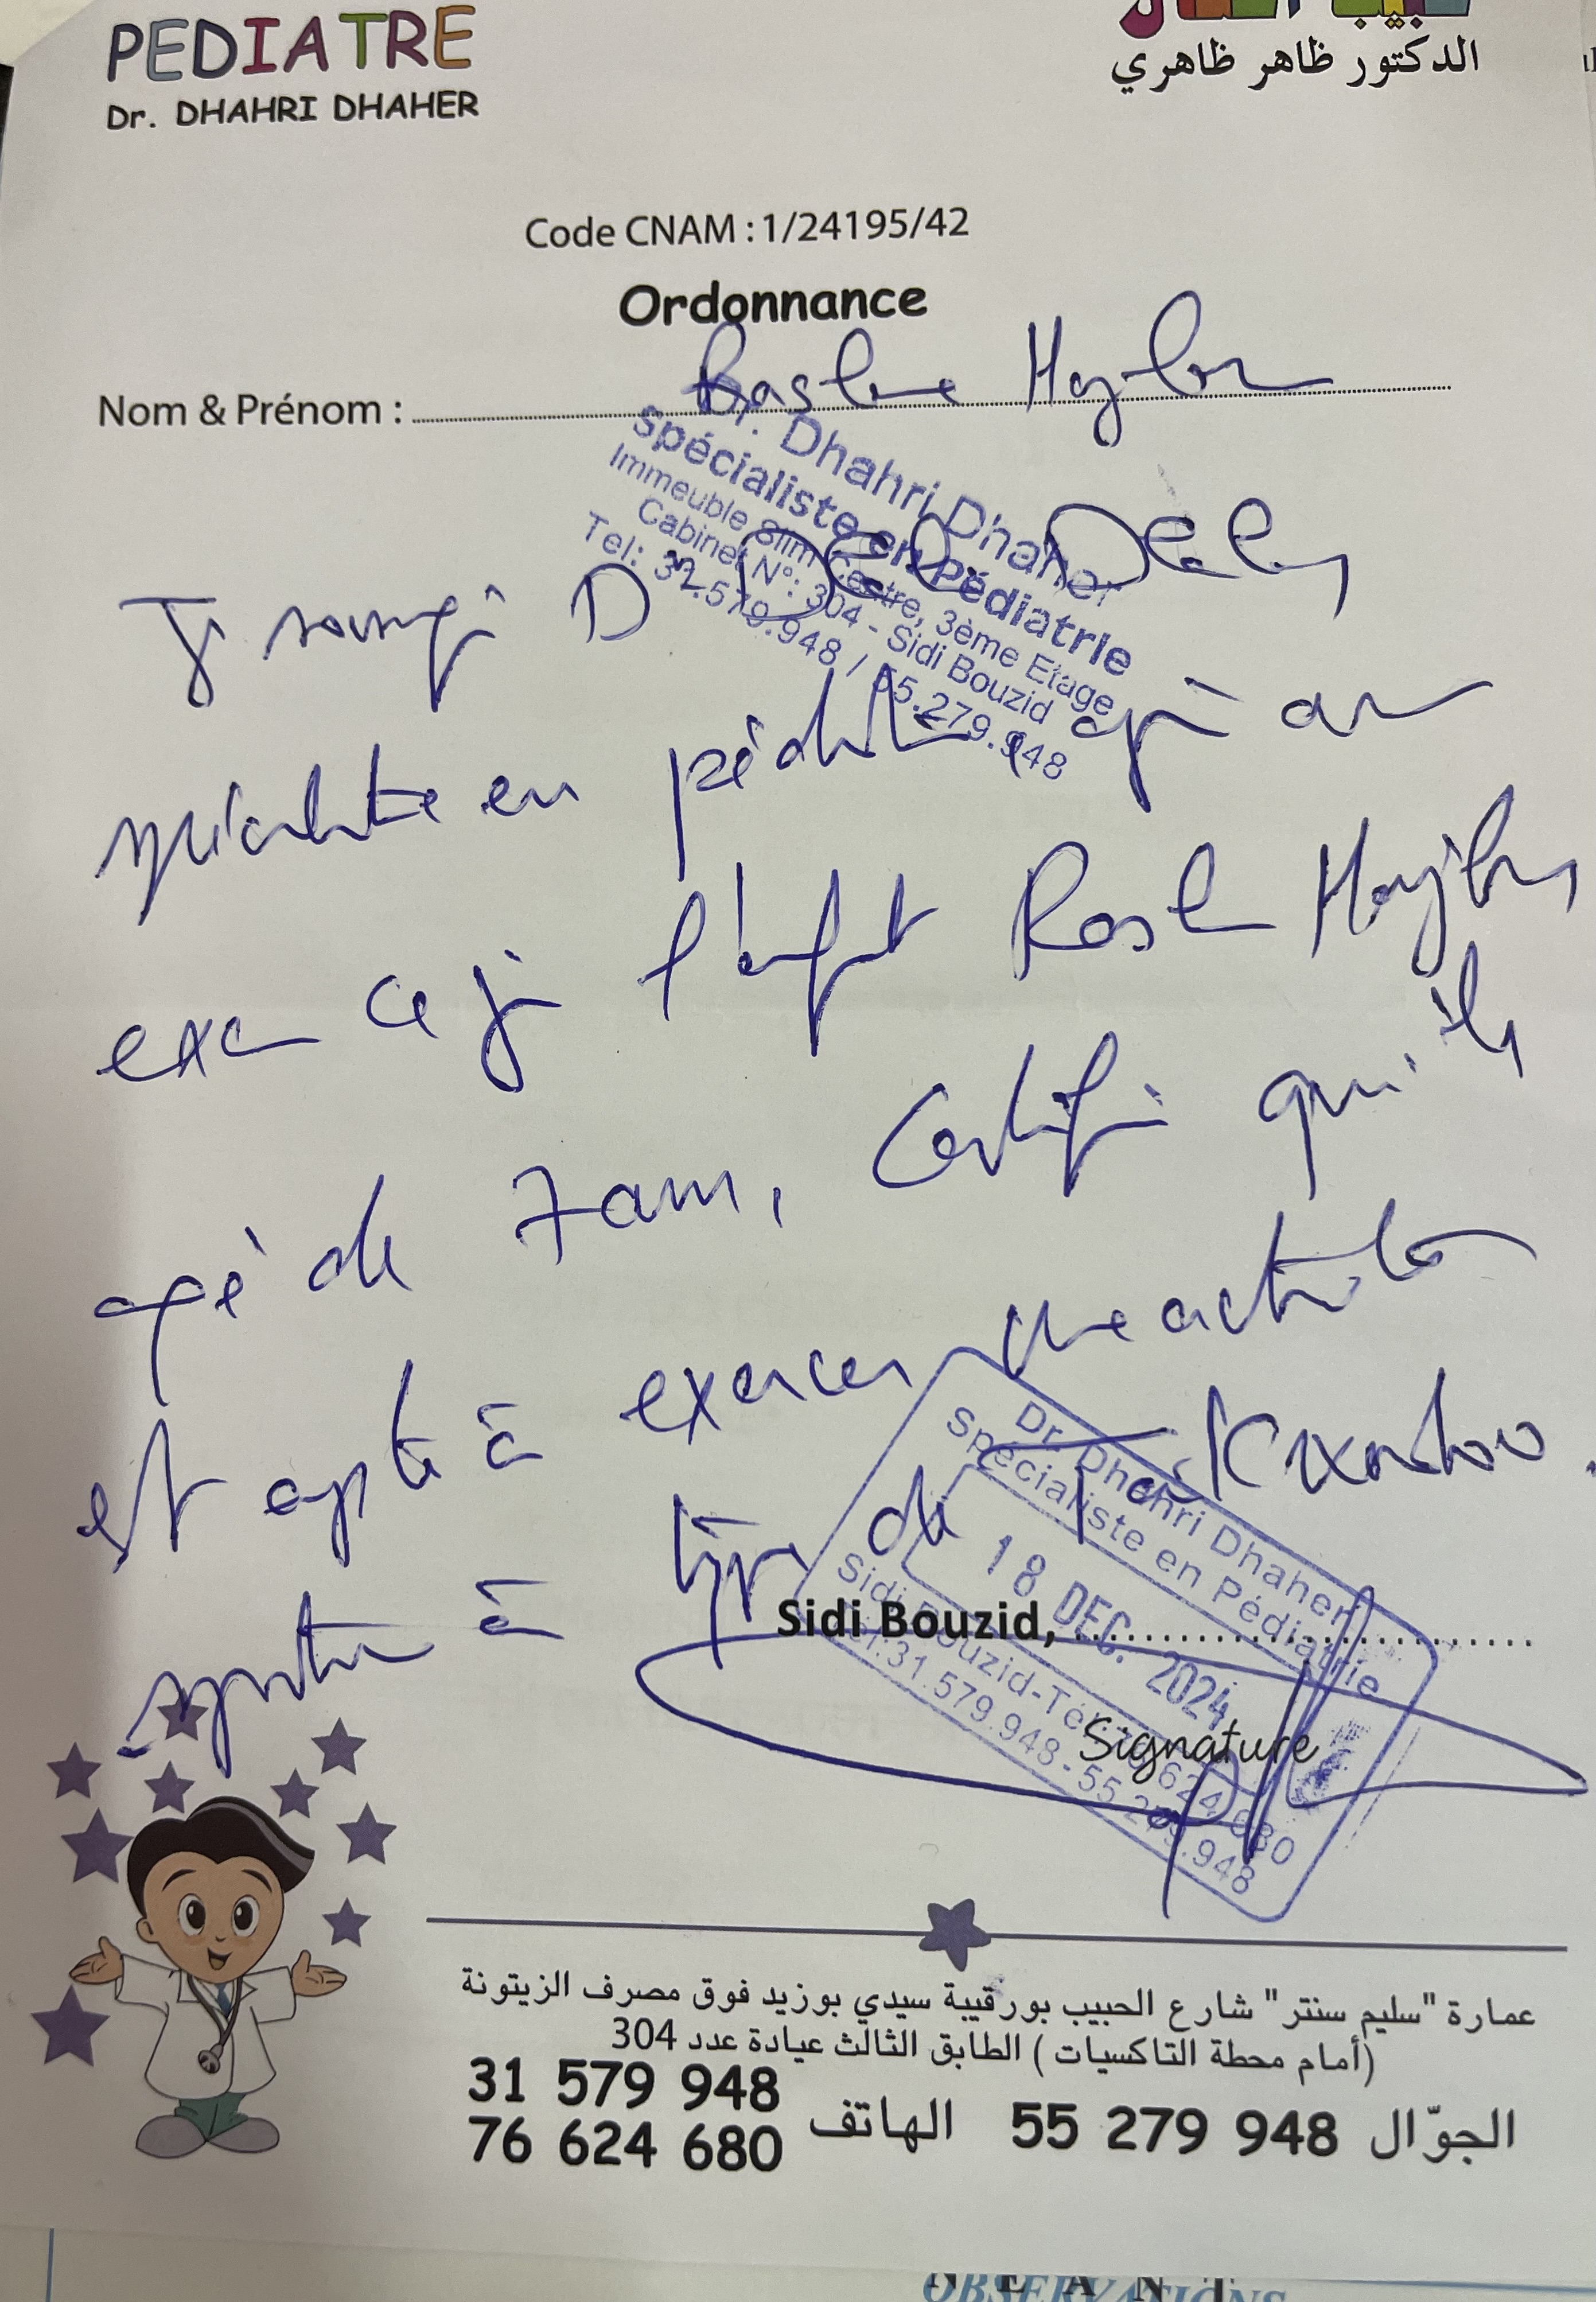 PEDIATRE
Dr. DHAHRI DHAHER
طبيب أطفال
الدكتور ظاهر ظاهري
Code CNAM : 1/24195/42
Ordonnance
Nom & Prénom :
Dr. Dhahri Dhaher
Spécialiste en Pédiatrie
Immeuble Slim Centre, 3ème Etage
Cabinet N°: 304 - Sidi Bouzid
Tel: .579.948 / 55.279.948
Je soussigné Dr
spécialiste en pédiatrie, après avoir
exa ce jour l'enfant
agé de 7 ans, certifie qu'il
est apte à exercer une activité
sportive à type de
Dr. Dhahri Dhaher
Spécialiste en Pédiatrie
18 DEC. 2024
Sidi Bouzid-Tél: 76 624 680
31.579.948 - 55 279.948
Sidi Bouzid,
Signature
عمارة "سليم سنتر" شارع الحبيب بورقيبة سيدي بوزيد فوق مصرف الزيتونة
(أمام محطة التاكسيات ) الطابق الثالث عيادة عدد 304
31 579 948
76 624 680
الهاتف
55 279 948 الجوّال
OBSERVATIONS